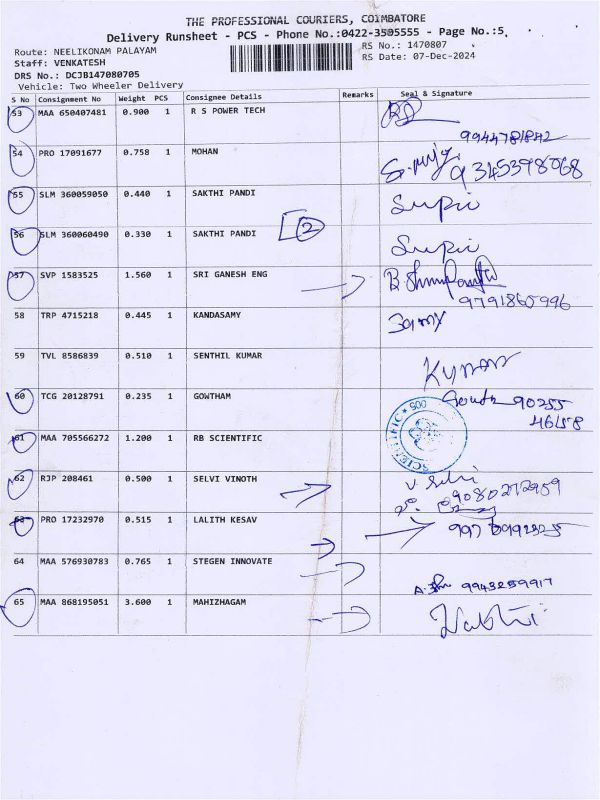 THE PROFESSIONAL COURIERS, COIMBATORE
Delivery Runsheet - PCS - Phone No.:0422-3505555 - Page No.:5
Route: NEELIKONAM PALAYAM
RS No.: 1470807
Staff: VENKATESH
RS Date: 07-Dec-2024
DRS No.: DCJB147080705
Vehicle: Two Wheeler Delivery
S No Consignment No Weight PCS Consignee Details Remarks Seal & Signature
53 MAA 650407481 0.900 1 R S POWER TECH
9944781842
54 PRO 17091677 0.758 1 MOHAN
9345398068
55 SLM 360059050 0.440 1 SAKTHI PANDI
56 SLM 360060490 0.330 1 SAKTHI PANDI 2
57 SVP 1583525 1.560 1 SRI GANESH ENG
9791865996
58 TRP 4715218 0.445 1 KANDASAMY
59 TVL 8586839 0.510 1 SENTHIL KUMAR
60 TCG 20128791 0.235 1 GOWTHAM 90255
46158
61 MAA 705566272 1.200 1 RB SCIENTIFIC
62 RJP 208461 0.500 1 SELVI VINOTH V. Selvi
9080272959
63 PRO 17232970 0.515 1 LALITH KESAV
64 MAA 576930783 0.765 1 STEGEN INNOVATE
9943259917
65 MAA 868195051 3.600 1 MAHIZHAGAM